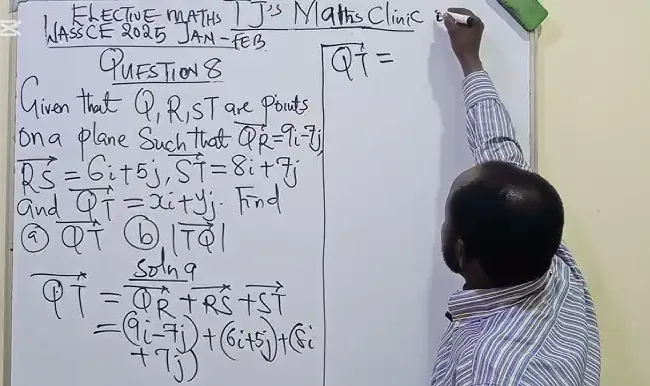 ELECTIVE MATHS TJ's Maths Clinic
WASSCE 2025 JAN-FEB
QUESTION 8
Given that Q, R, S T are points
on a plane Such that QR = 9i-7j,
RS = 6i+5j, ST = 8i+7j
and QT = xi+yj. Find
(a) QT (b) |TQ|
soln a
QT = QR + RS + ST
= (9i-7j) + (6i+5j) + (8i
+7j)
QT =